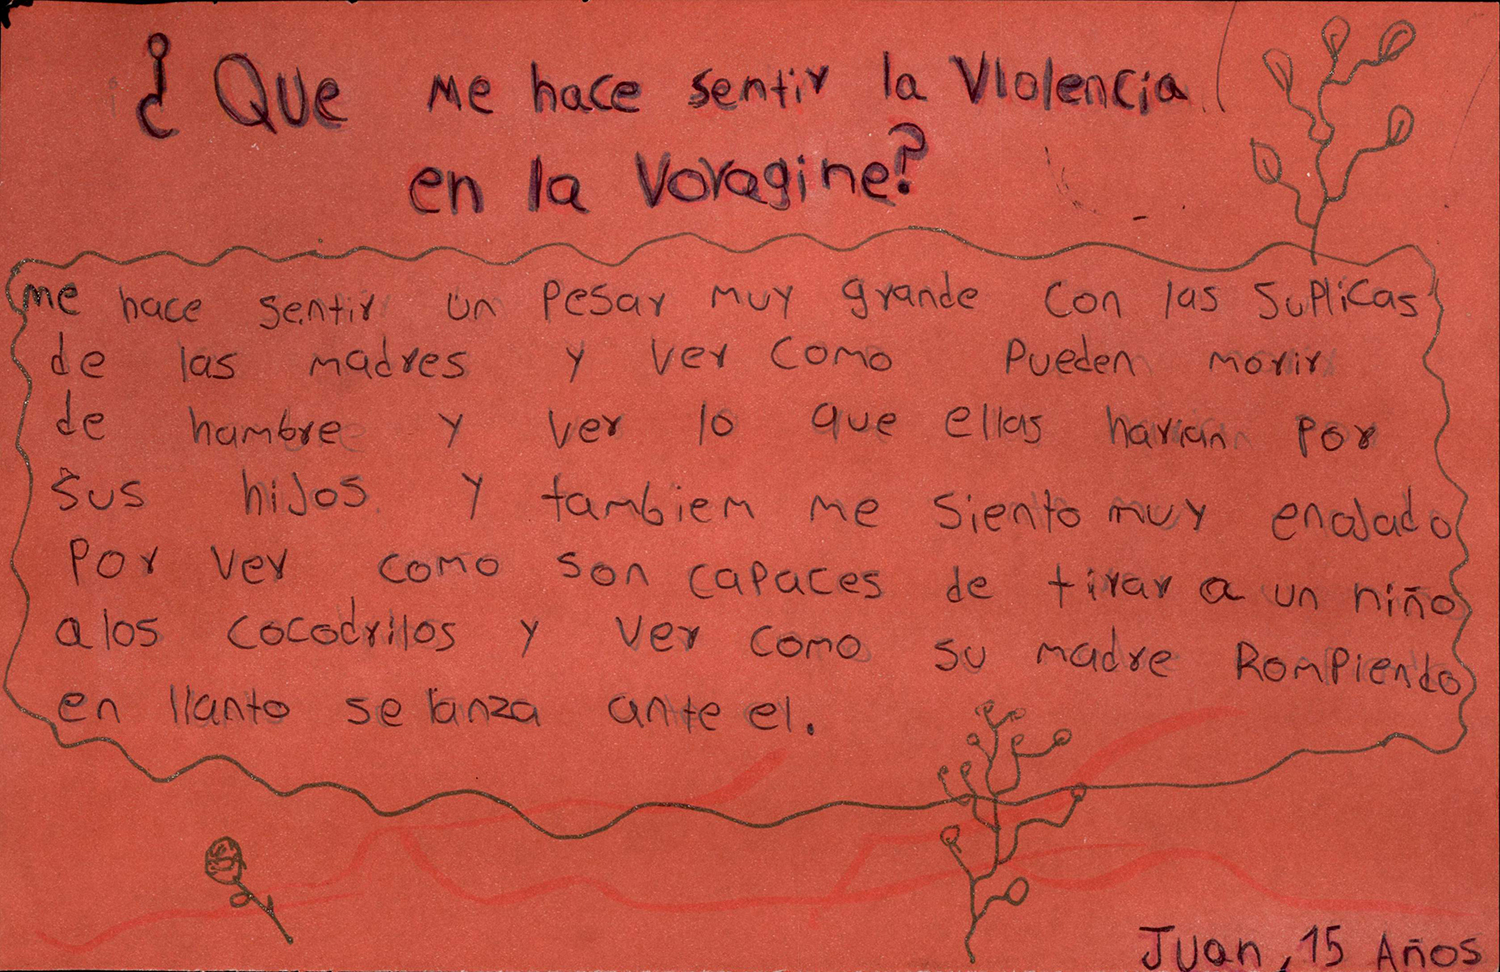 ¿Que me hace sentir la Violencia
en la Voragine?
me hace sentir un Pesar muy grande con las suplicas
de las madres y ver como pueden morir
de hambre y ver lo que ellas harian por
sus hijos y tambiem me siento muy enojado
por ver como son capaces de tirar a un niño
a los cocodrilos y ver como su madre Rompiendo
en llanto se lanza ante el.
Juan, 15 Años